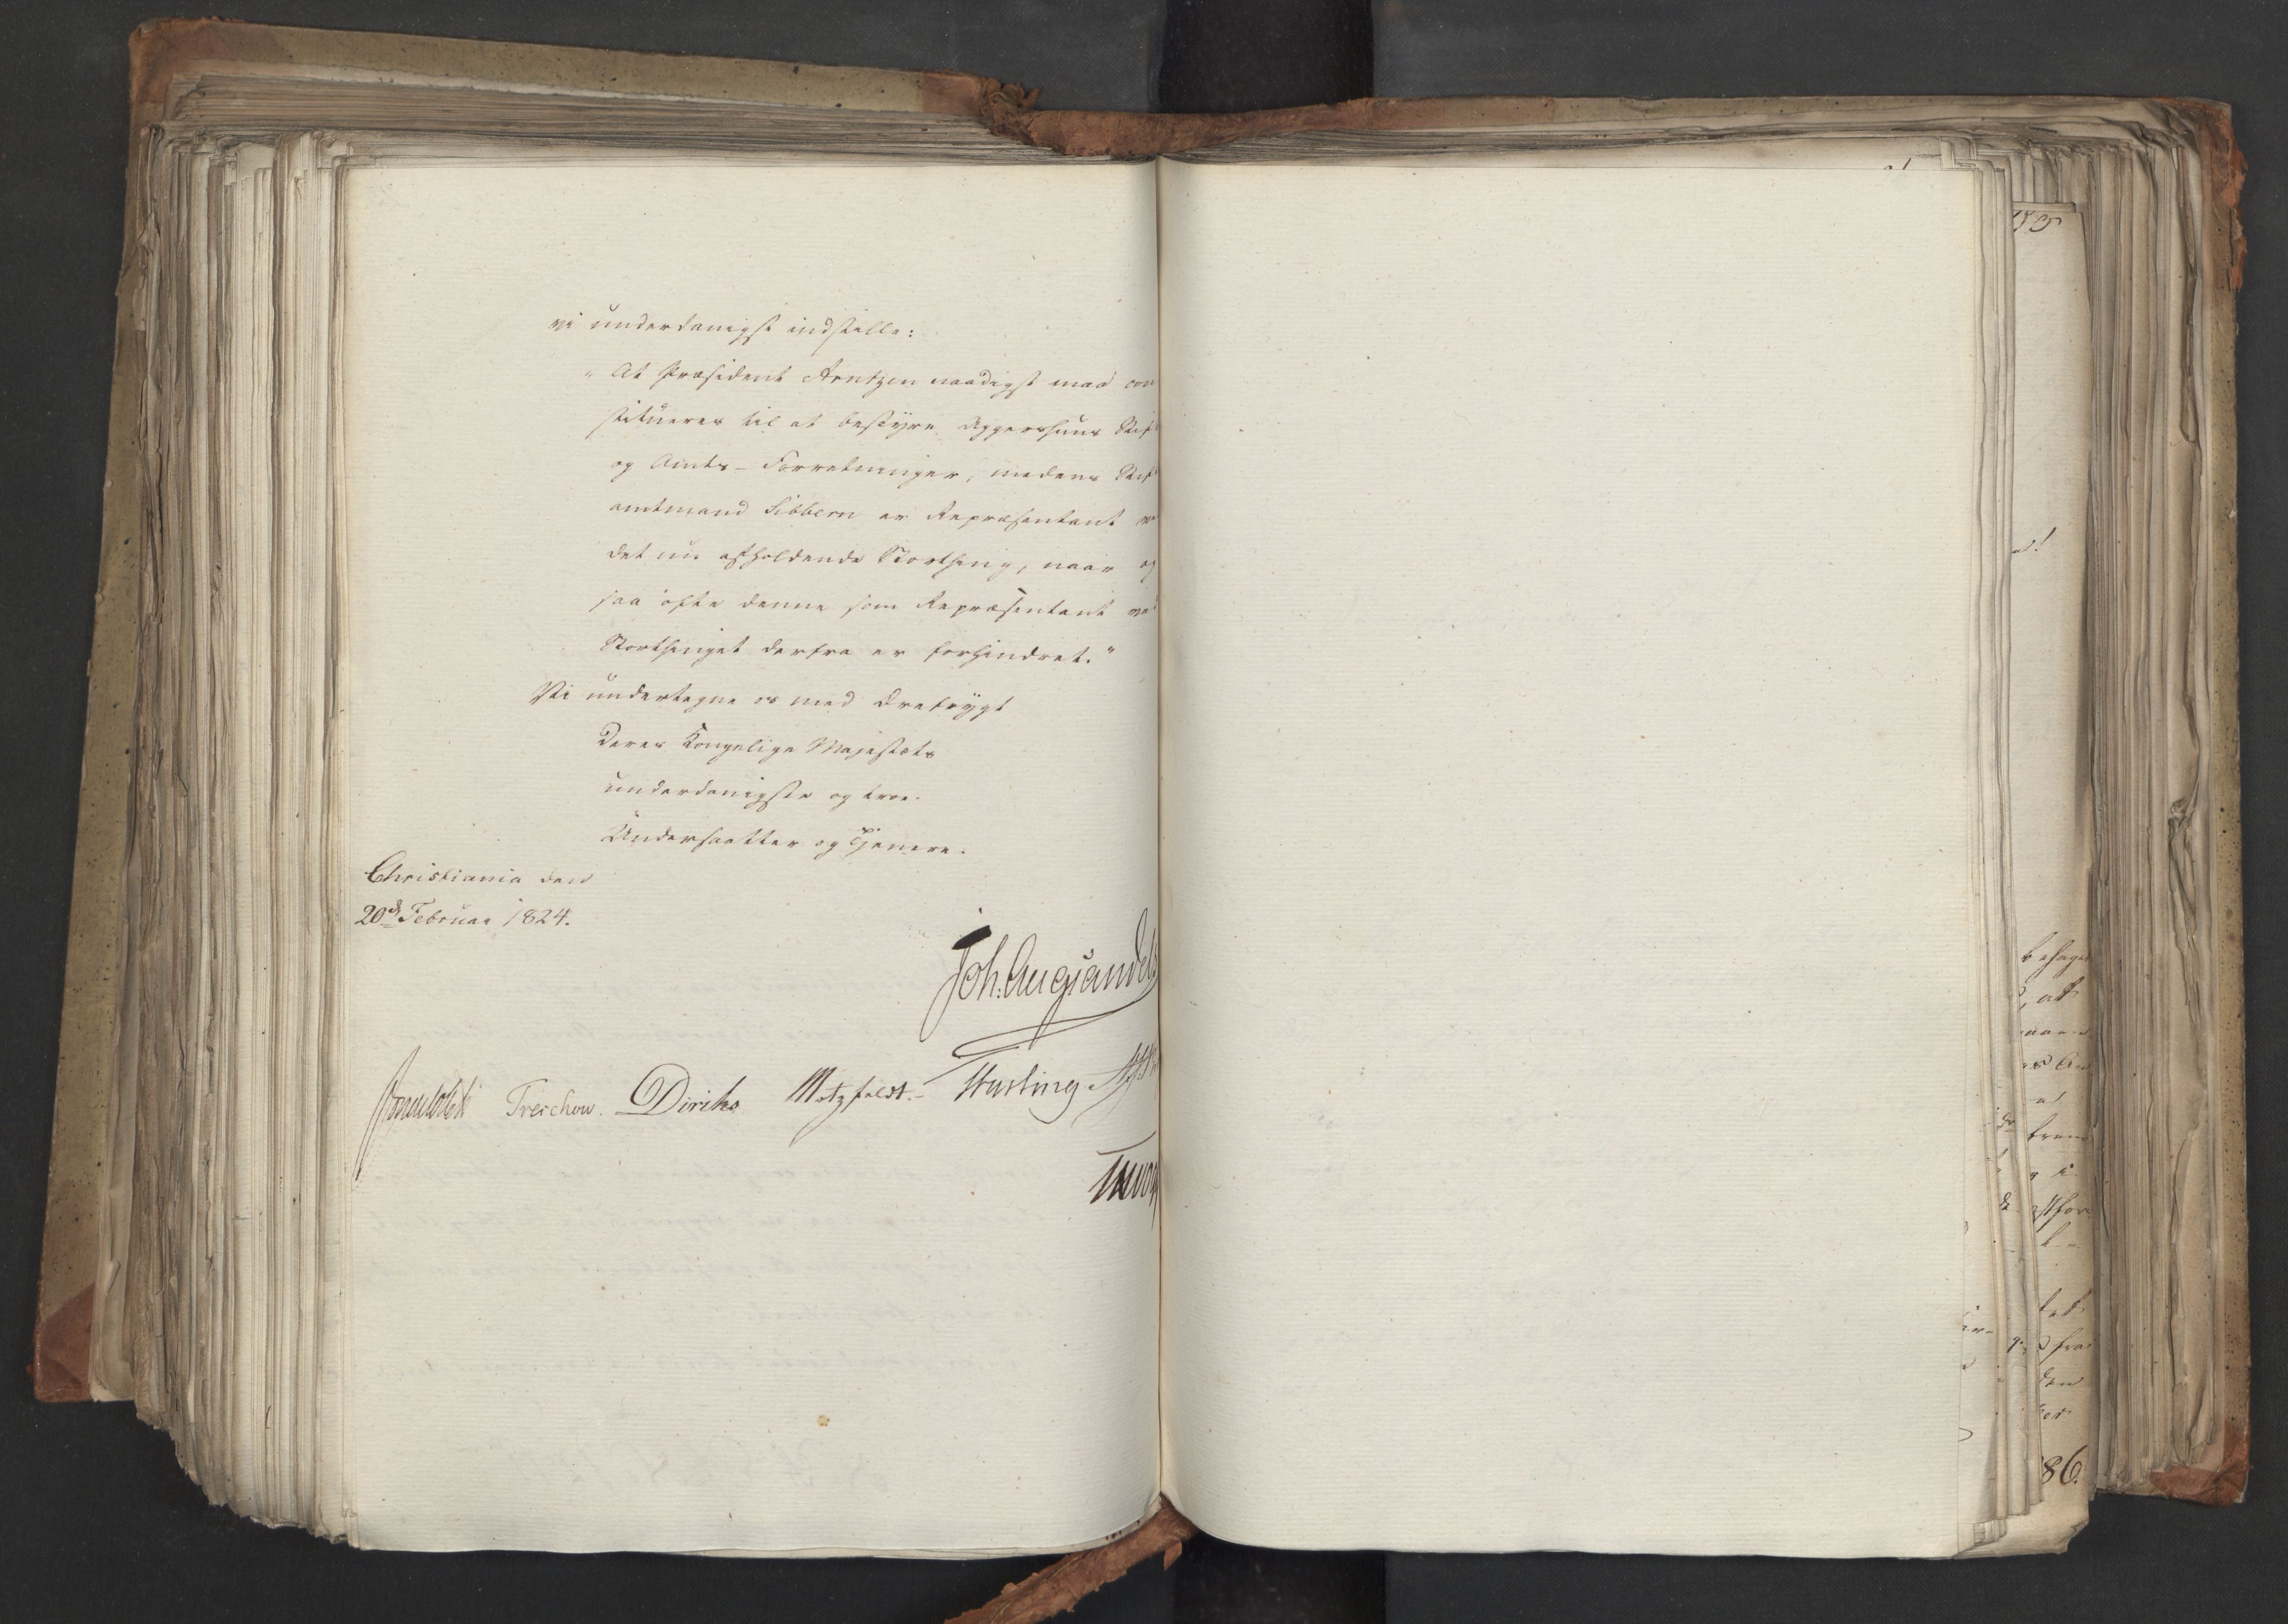 vi underdanigst indstille:
"At Præsident Arntzen naadigst maa con
stitueres til at bestyre Aggershuus Stif
og Amts-Forretninger, medens Stif
amtmand Sibbern er Repræsentant v
det nu afholdende Storthing, naar og
saa ofte denne som Repræsentant ved
Storthinget derfra er forhindret."
Vi undertegne os med Ærefrygt
Deres Kongelige Majestæts
underdanigste og troe-
Undersaatter og Tjenere.
Christiania den
20de Februar 1824.
Joh: Aug Sandels
Sommerfeldt Treschow. Diriks Motzfeldt.- Fasting